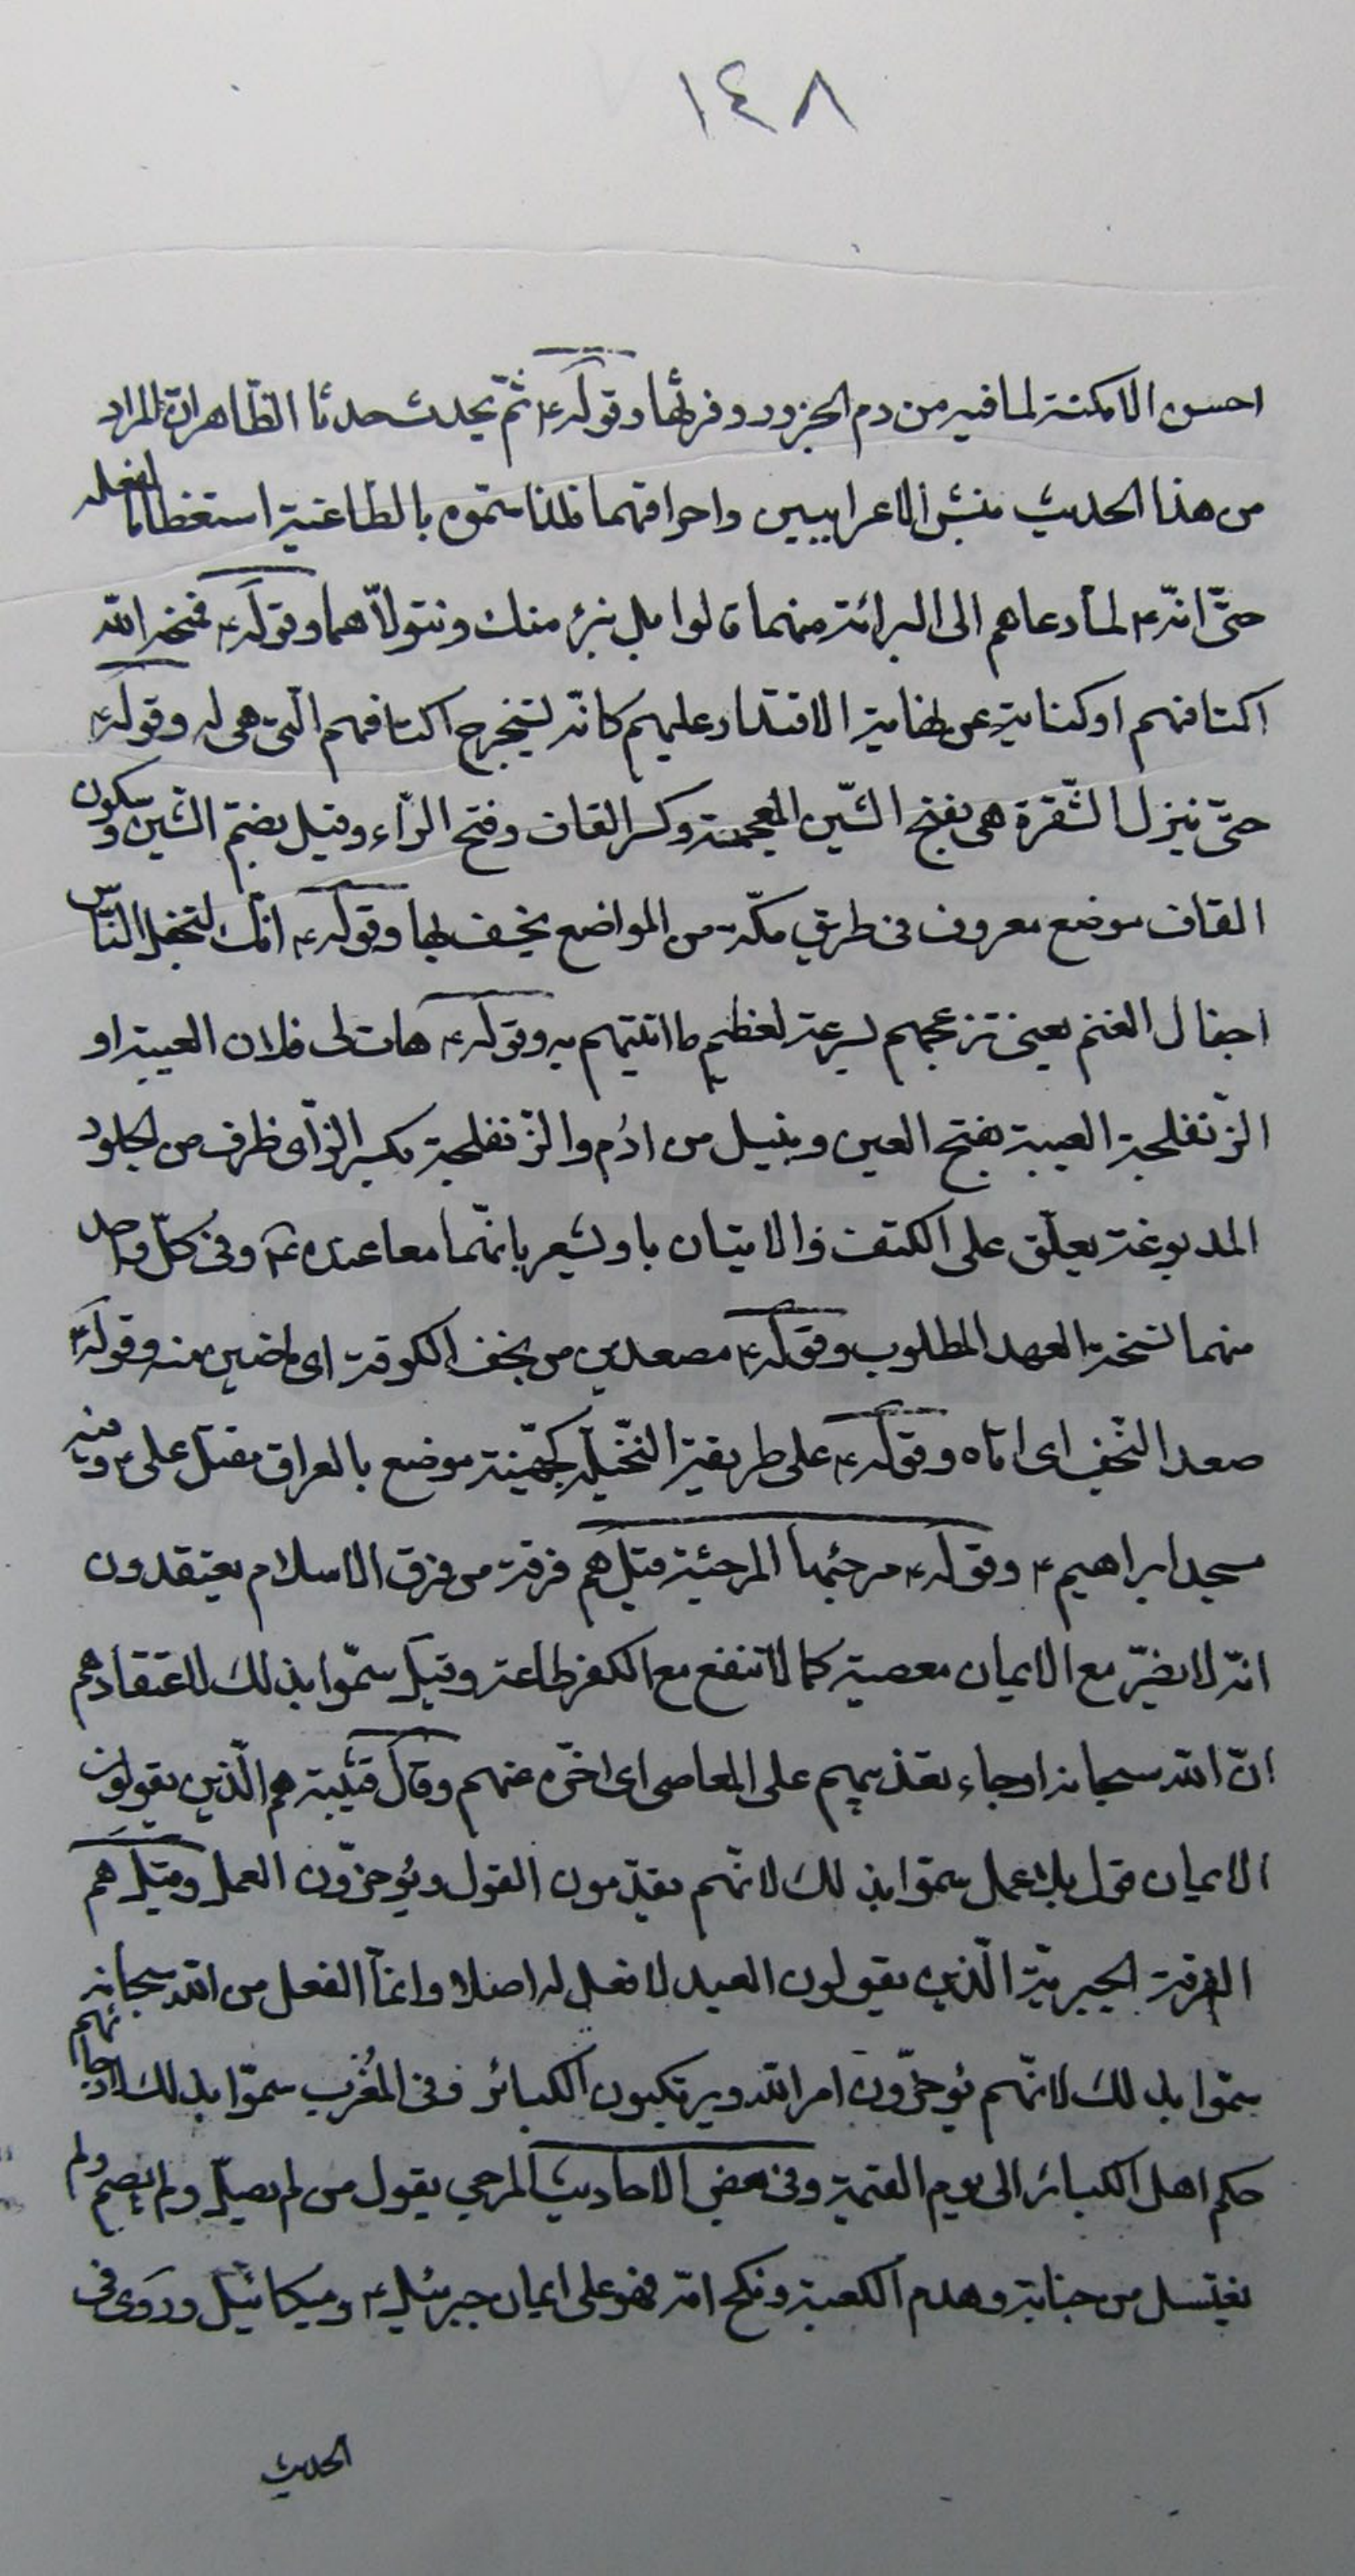 ١٤٨
احسن الامكنة لما فيه من دم الجزور وفرثها وقوله ع ثمّ يحدث حدثا الظّاهر انّ المراد
من هذا الحديث نبش الاعرابيين واحراقهما فلذا سمّوه بالطّاغية استعظاما لفعله
حتّى انّه ع لمّا دعاهم الى البرائة منهما قالوا بل نبرئ منك ونتولّاهما وقوله ع فمنحه الله
اكتافهم او كناية عن نهاية الاقتدار عليهم كانّه ليستخرج اكتافهم الّتى هى له وقوله ع
حتّى ينزل الشّقرة هى بفتح الشّين المعجمة وكسر القاف وفتح الرّاء وقيل بضمّ الشّين وسكون
القاف موضع معروف فى طريق مكّة من المواضع يخسف بها وقوله ع انّك لتجفل النّاس
اجفال الغنم يعنى تزعجهم بسرعة لعظيم ما اتيتهم به وقوله ع هات لى فلان العيبة او
الزّنفلجة العيبة بفتح العين وبنيل من ادُم والزّنفلجة بكسر الزّاى ظرف من الجلود
المدبوغة يعلّق على الكتف والاتيان باو يشعر بانّهما معا عنده ع وفى كلّ واحد
منهما نسخة العهد المطلوب وقوله ع مصعدين من نجف الكوفة اى ماضين منه وقوله ع
صعد النّجف اى اتاه وقوله ع على طريقة النّخيلة كجهينة موضع بالعراق مقتل على ع وفيه
مسجد ابراهيم ع وقوله ع مرجئيها المرجئة قيل هم فرقة من فرق الاسلام يعتقدون
انّه لا يضرّ مع الايمان معصية كما لا تنفع مع الكفر طاعة وقيل سمّوا بذلك لاعتقادهم
انّ الله سبحانه ارجاء تعذيبهم على المعاصى اى اخّره عنهم وقال قتيبة هم الّذين يقولون
الايمان قول بلا عمل سمّوا بذلك لانّهم يقدّمون القول ويُؤخّرون العمل وقيل هم
الفرقة الجبريّة الّذين يقولون العبد لا فعل له اصلا وانمّا الفعل من الله سبحانه
سمّوا بذلك لانّهم يُؤخّرون امر الله ويرتكبون الكبائر وفى المُغرب سمّوا بذلك لارجائهم
حكم اهل الكبائر الى يوم القيمة وفى بعض الاحاديث المرجى يقول من لم يصلّ ولم يصم ولم
يغتسل من جنابة وهدم الكعبة ونكح امّه فهو على ايمان جبرئيل ع وميكائيل وروى فى
الحديث